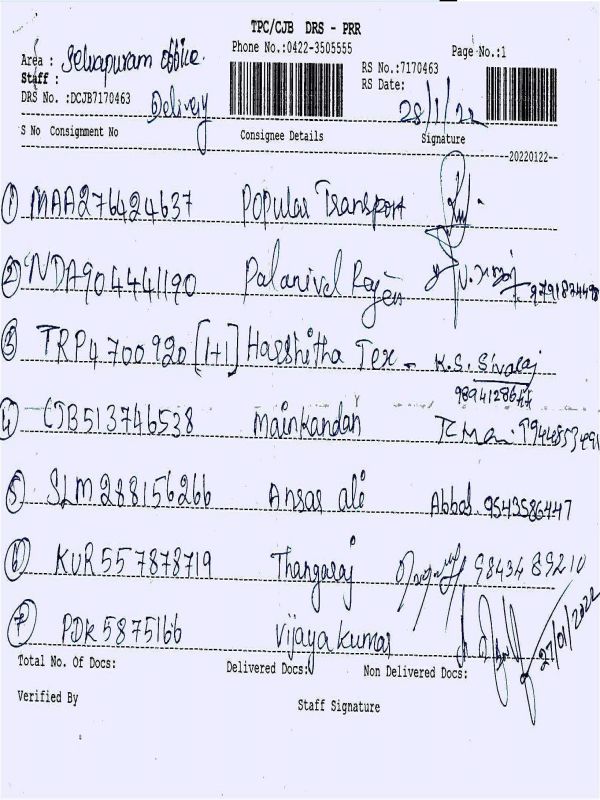 TPC/CJB DRS - PRR
Phone No.:0422-3505555
Page No.:1
Area : Selvapuram office.
Staff :
RS No.:7170463
RS Date:
DRS No. :DCJB7170463
Delivery
28/1/22
S No Consignment No Consignee Details Signature
20220122
1 MAA276424637 Popular Transport
2 NDA904441190 Palanivel Rajen
3 TRP4700920 [1+1] Harshitha Tex - K.S. Sivaraj
9894128647
4 CJB513746538 Mainkandan K Mani.
5 SLM288156266 Ansar ali Abbas. 9543586447
6 KUR557878719 Thangaraj 9843489210
7 PDK5875166 Vijayakumar 27/01/2022
Total No. Of Docs: Delivered Docs: Non Delivered Docs:
Verified By Staff Signature